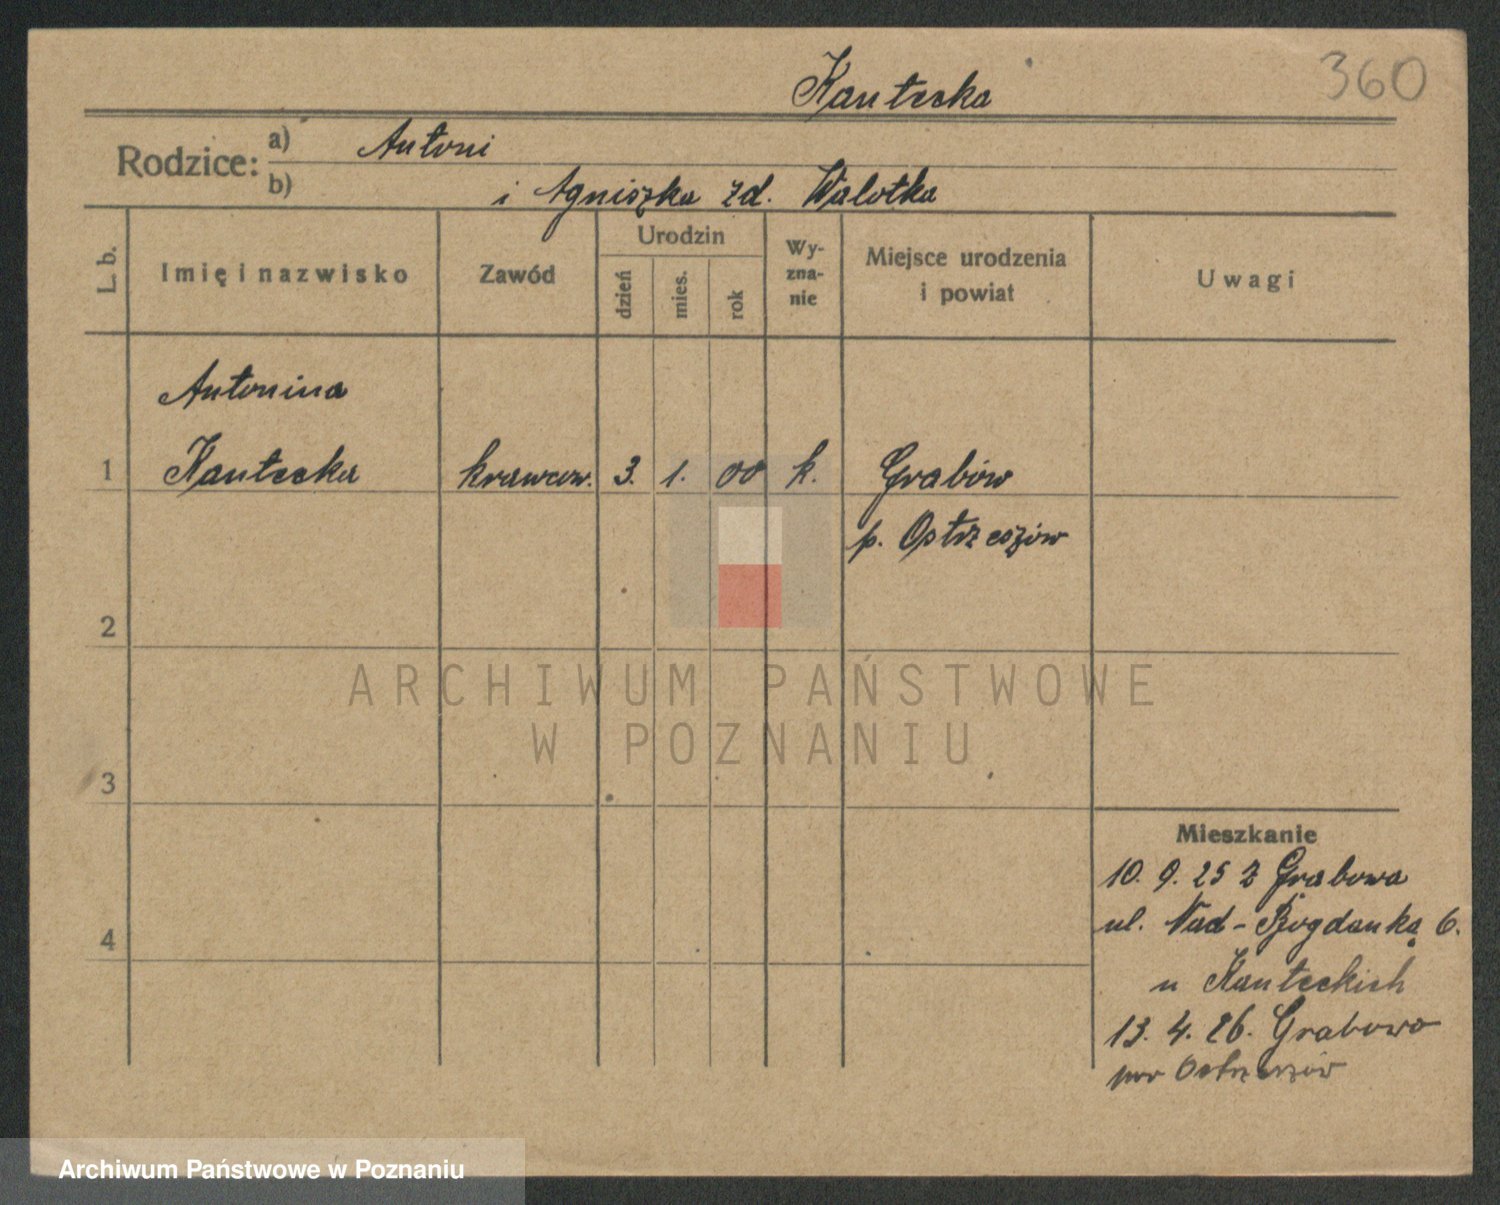 Kantecka
360
Rodzice: a) Antoni
b) i Agniszka zd. Walotka
L. b.
Imię i nazwisko
Zawód
Urodzin
dzień
mies.
rok
Wy-
zna-
nie
Miejsce urodzenia
i powiat
Uwagi
Antonina
1 Kantecka krawcow. 3. 1. 00 k. Grabów
p. Ostrzeszów
2
ARCHIWUM PAŃSTWOWE
W POZNANIU
3
Mieszkanie
10. 9. 25 z Grabowa
ul. Nad-Bogdanką 6.
4
u Kanteckich
13. 4. 26. Grabowo
pow Ostrzeszów
Archiwum Państwowe w Poznaniu